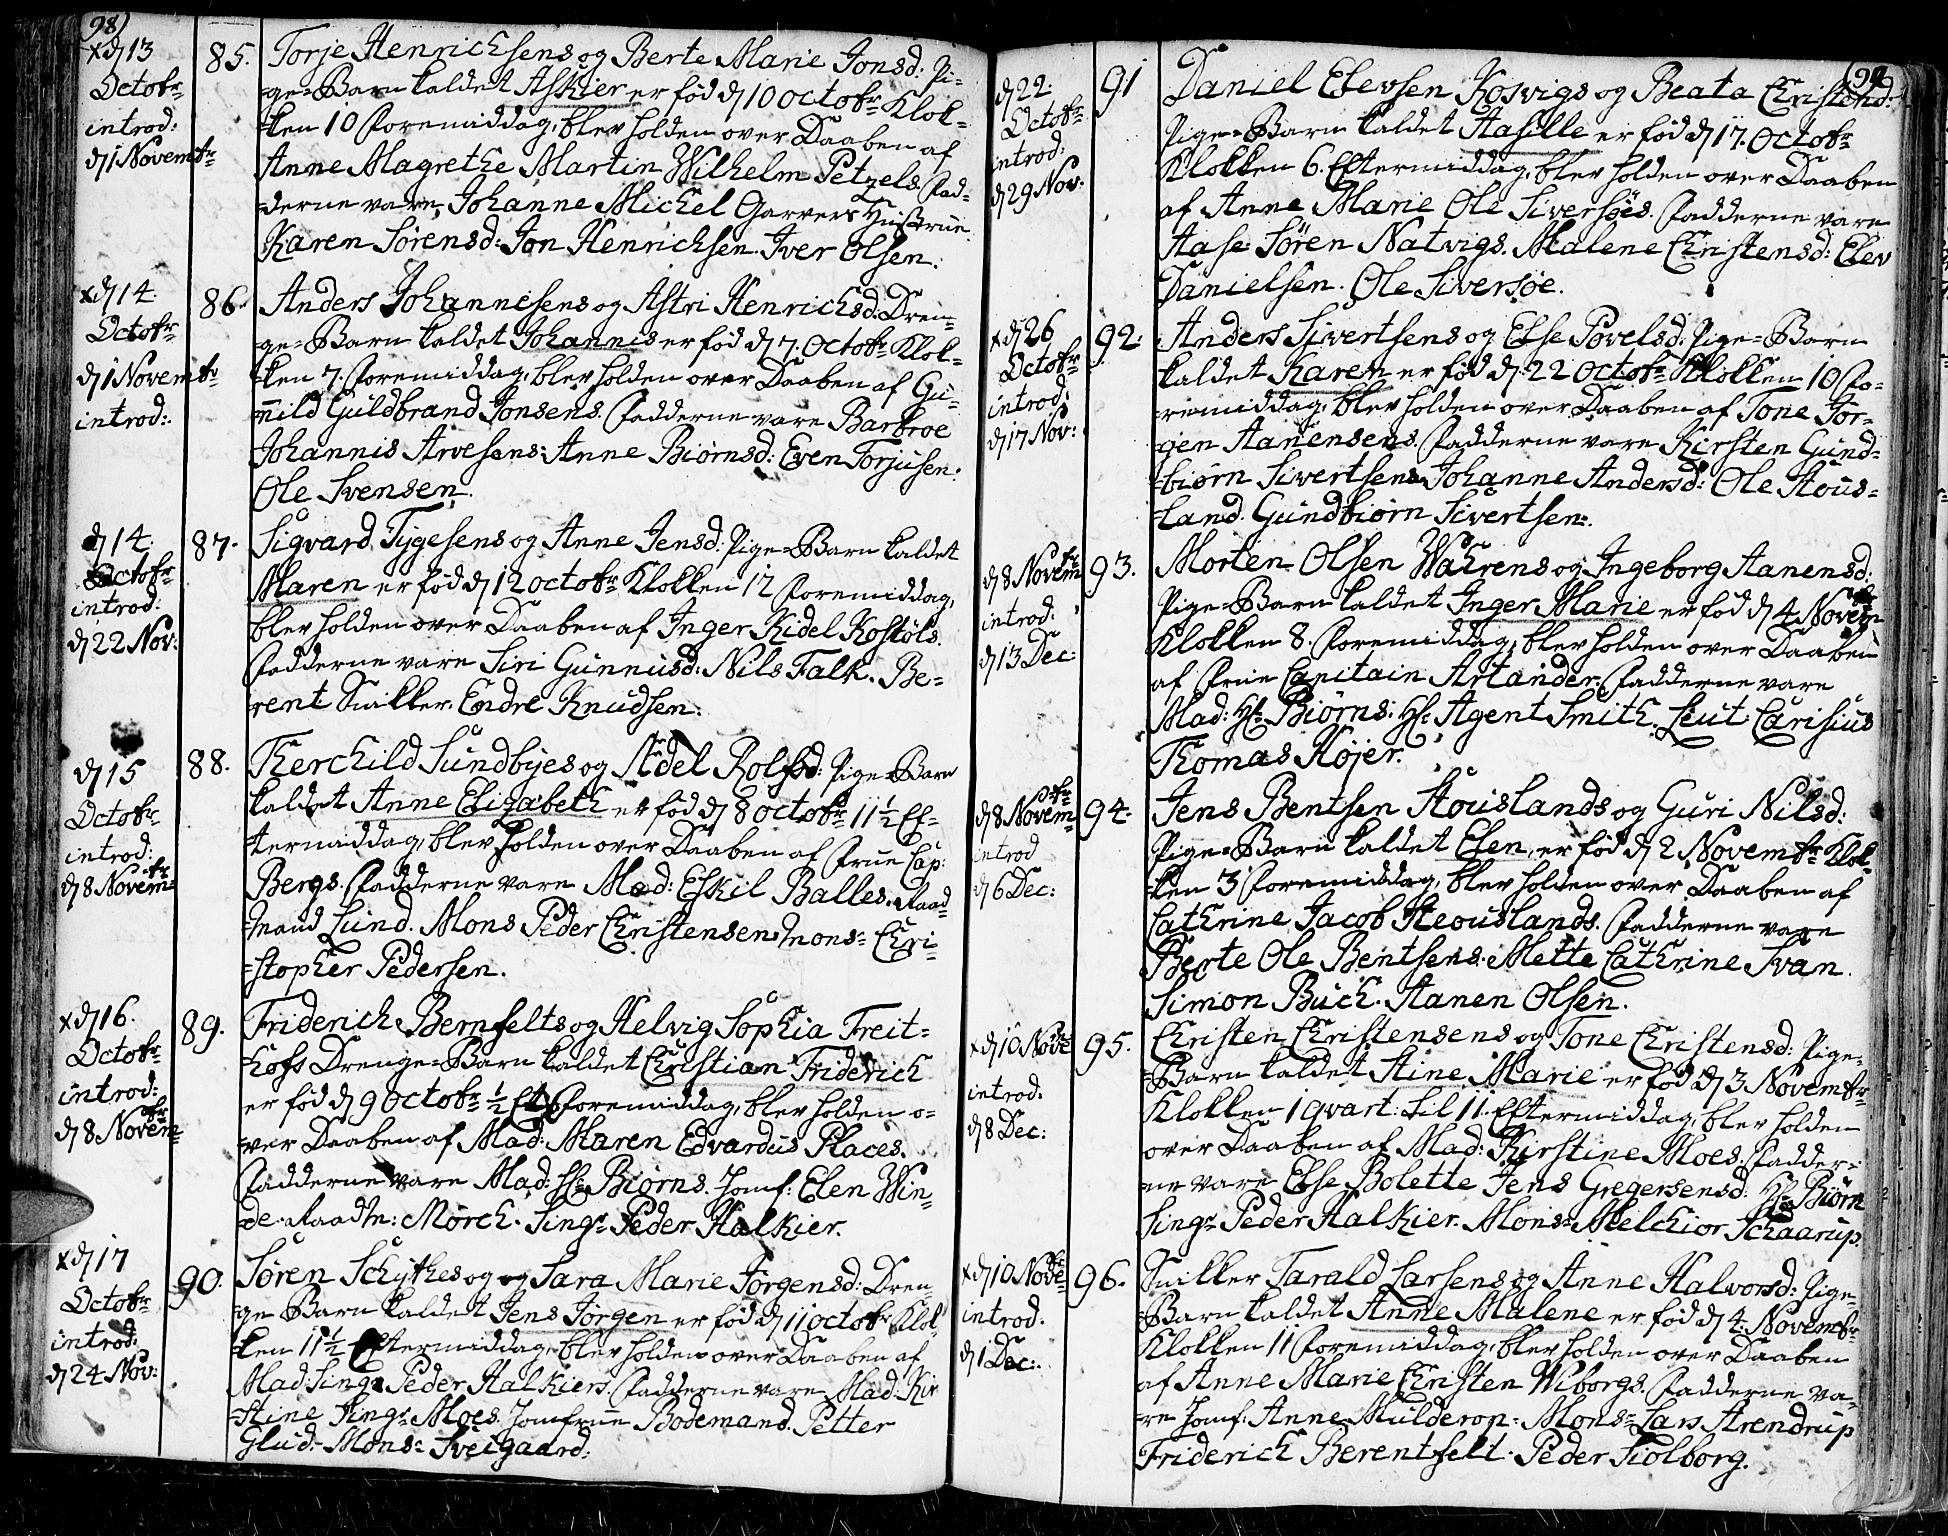 (98)
x d 13 Octobr introd: d 1 Novembr
85. Torje Henrichsens og Berte Marie Jonsd: Pi-
ge-Barn kaldet Askier er fød d 10 Octobr Klok-
ken 10 Foremiddag, blev holden over Daaben af
Anne Magrethe Martin Wilhelm Petzels. Fad-
derne vare, Johanne Michel Garvers Hustrue
Karen Sørensd: Jon Henrichsen. Iver Olsen.
x d 14. Octobr d 1 Novembr introd:
86. Anders Johannesens og Astri Henrichsd: Dren-
ge-Barn kaldet Johannis er fød d 7. Octobr Klok-
ken 7. Foremiddag, blev holden over Daaben af Gu-
nild Guldbrand Jonsens. Fadderne vare Barbroe
Johannis Arvesens: Anne Biørnsd: Even Torjusen.
Ole Svensen.
d 14. Octobr introd: d 22 Nov:
87. Sigvard Tygesens og Anne Jensd: Pige-Barn kaldet
Maren er fød d 12 Octobr Klokken 12 Foremiddag,
blev holden over Daaben af Inger Kidel Kostøls.
Fadderne vare Siri Gunnusd: Nils Falk. Be-
rent Snikker. Endre Knudsen.
d 15 Octobr introd: d 8 Novembr
88. Therchild Sundbyes og Adel Rolfsd: Pige-Barn
kaldet Anne Elizabeth er fød d 8 Octobr 11 1/2 Ef-
termiddag, blev holden over Daaben af Frue Cap:
Bergs. Fadderne vare Mad: Eskil Balles. Raad-
mand Lund. Mons Peder Christensen. Mons= Chri-
stopher Pedersen.
x d 16. Octobr introd: d 8 Novembr
89. Friderich Bernfelts og Helvig Sophia Freit-
hofs Drenge-Barn kaldet Christian Friderich
er fød d 9 Octobr 1/2 Foremiddag, blev holden o-
ver Daaben af Mad: Maren Edvardus Places.
Fadderne vare Mad: Hr Biørns. Jomf: Elen Win-
de. Raadm: Mørch. Singr Peder Halkier.
x d 17 Octobr introd: d 24 Nov:
90. Søren Schythes og og Sara Marie Jørgensd: Dren-
ge Barn kaldet Jens Jørgen er fød d 11 Octobr Klok-
ken 11 1/2 Eftermiddag, blev holden over Daaben af
Mad: Singr Peder Halkiers. Fadderne vare Mad: Kir-
stine Singr Moes. Jomfrue Bodemand. Petter
Glud. Mons= Sveigaard.
(99
d 22. Octobr introd: d 29 Nov.
91 Daniel Elevsen Kosvigs og Beata Christend:
Pige-Barn kaldet Aasille er fød d 17. Octobr
Klokken 6. Eftermiddag, blev holden over Daaben
af Anne Marie Ole Siversøes. Fadderne vare
Aase Søren Natvigs. Malene Christensd: Elev
Danielsen. Ole Siversøe.
x d 26 Octobr introd: d 17 Nov:
92. Anders Sivertsens og Else Povelsd: Pige-Barn
kaldet Karen er fød d 22 Octobr Klokken 10 Fo-
remiddag, blev holden over Daaben af Tone Jør-
gen Aanensens. Fadderne vare Kirsten Gund-
biørn Sivertsens Johanne Andersd: Ole Stous-
land. Gundbiørn Sivertsen.
d 8 Novembr introd: d 13 Dec:
93. Morten Olsen Wahrens og Ingeborg Aanensd:
Pige-Barn kaldet Inger Marie er fød d 4 Novem
Klokken 8. Foremiddag, blev holden over Daaben
af Frue Capitain Artander. Fadderne vare
Mad: Hr Biørns. Hr Agent Smith. Leut Carisius
Thomas Høyer.
d 8 Novembr introd d 6 Dec:
94. Jens Bentsen Stouslands og Guri Nilsd:
Pige-Barn kaldet Elsen, er fød d 2 Novembr Klok-
ken 3 Foremiddag, blev holden over Daaben af
Cathrine Jacob Steouslands. Fadderne vare
Berte Ole Bentsens. Mette Cathrine Ivan.
Simon Buch. Aanen Olsen.
x d 10 Novbr introd. d 8 Dec:
95. Christen Christensens og Tone Christensd: Pige-
Barn kaldet Stine Marie er fød d 3 Novembr
Klokken 1 qvart: til 11. Eftermiddag, blev holden
over Daaben af Mad: Kirstine Moes. Fadder-
ne vare Else Bolette Jens Gregersensd: Hr Biørn
Singr Peder Halkier. Mons= Melchior Schaarup.
x d 10 Novbr introd. d 1 Dec:
96. Snikker Tarald Larsens og Anne Halvorsd: Pige-
Barn kaldet Anne Malene er fød d 4. Novembr
Klokken 11 Foremiddag, blev holden over Daaben
af Anne Marie Christen Wiborgs. Fadderne va-
re Jomf: Anne Mulderop. Mons= Lars Arendrup
Friderich Berentfelt. Peder Fiolborg.